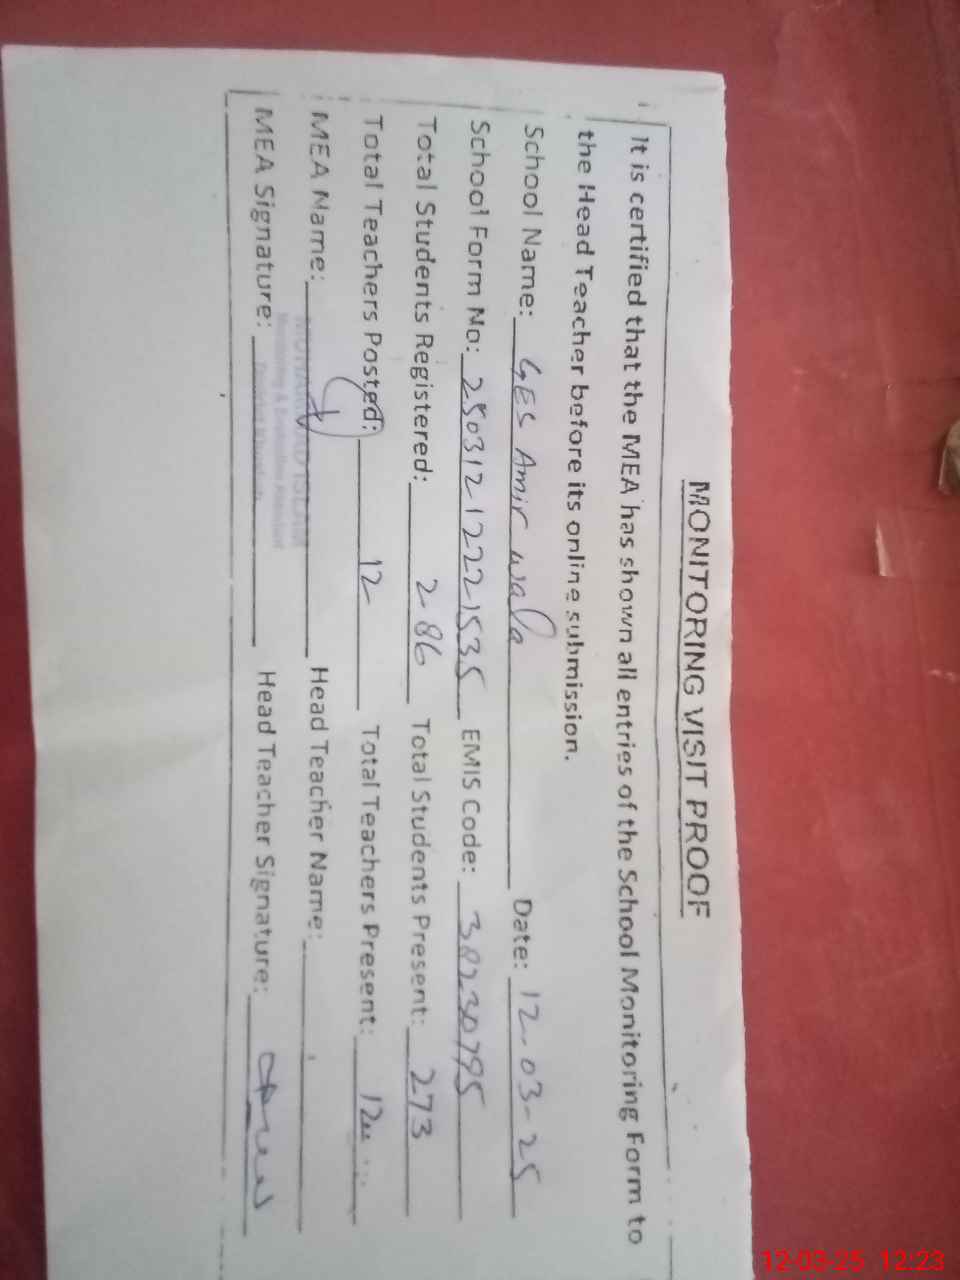 MONITORING VISIT PROOF
It is certified that the MEA has shown all entries of the School Monitoring Form to
the Head Teacher before its online submission.
School Name: GES Amir wala Date: 12-03-25
School Form No: 25031212221535 EMIS Code: 38230795
Total Students Registered: 286 Total Students Present: 273
Total Teachers Posted: 12 Total Teachers Present: 12
MEA Name: MUHAMMAD ISLAM Head Teacher Name:
Monitoring & Evaluation Assistant
MEA Signature: Head Teacher Signature:
12-03-25 12:23